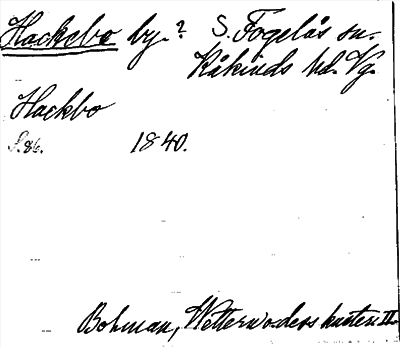 Hackebo by.? S. Fogelås sn.
Kåkinds hd. Vg.
Hackbo
S. 86. 1840.
Bohman, Wettern o. dess kuster. II.